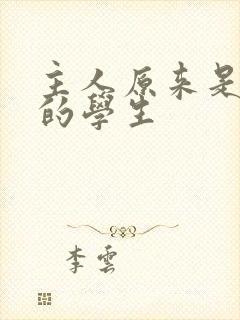 主人原来是
的學生
李雲